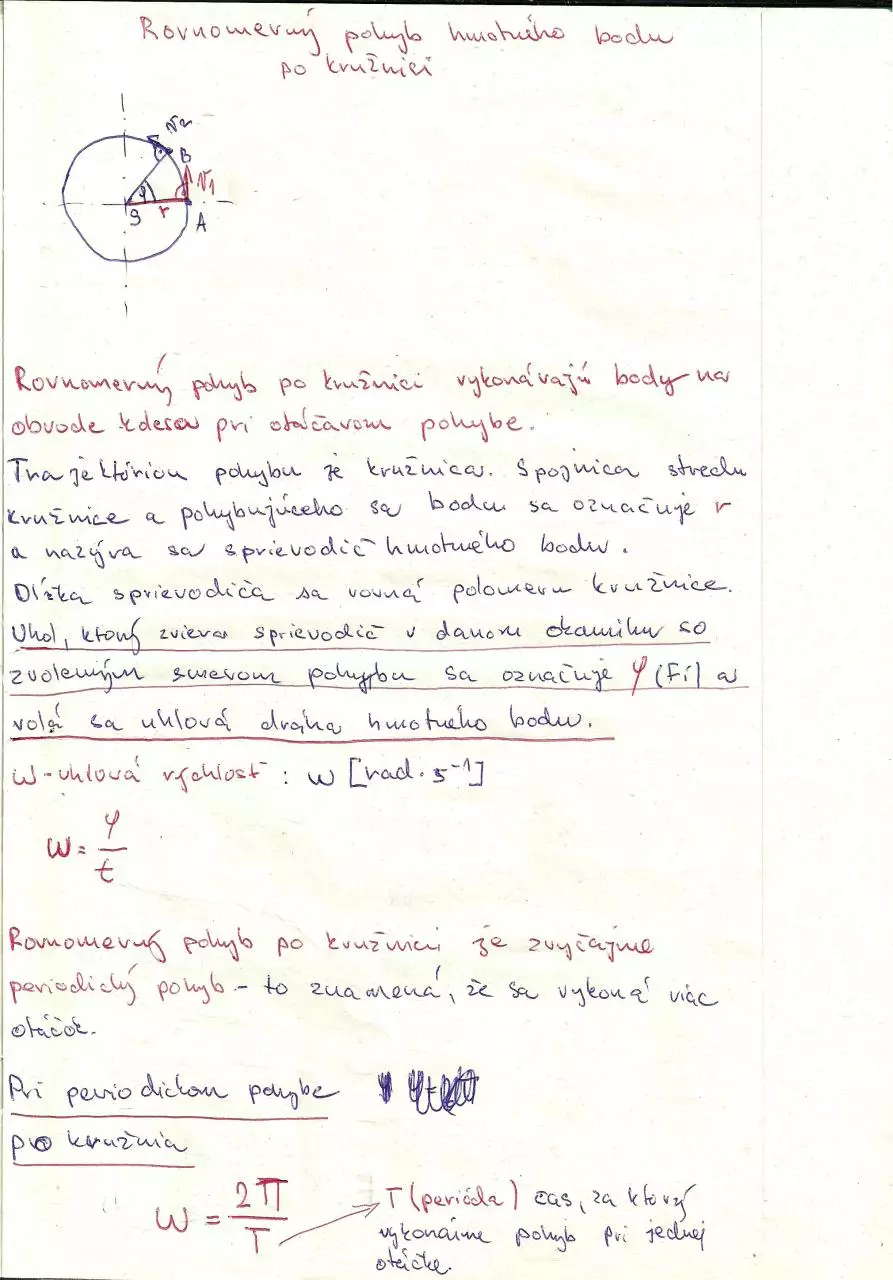 Rovnomerný pohyb hmotného bodu
po kružnici
v2
B
v1
φ
S
r
A
Rovnomerný pohyb po kružnici vykonávajú body na
obvode kolesa pri otáčavom pohybe.
Trajektóriou pohybu je kružnica. Spojnica stredu
kružnice a pohybujúceho sa bodu sa označuje r
a nazýva sa sprievodič hmotného bodu.
Dĺžka sprievodiča sa rovná polomeru kružnice.
Uhol, ktorý zviera sprievodič v danom okamihu so
zvoleným smerom pohybu sa označuje φ (Fí) a
volá sa uhlová dráha hmotného bodu.
ω - uhlová rýchlosť : ω [rad · s⁻¹]
ω = φ / t
Rovnomerný pohyb po kružnici je zvyčajne
periodický pohyb - to znamená, že sa vykoná viac
otáčok.
Pri periodickom pohybe
po kružnici
ω = 2π / T
T (perióda) čas, za ktorý
vykonáme pohyb pri jednej
otáčke.